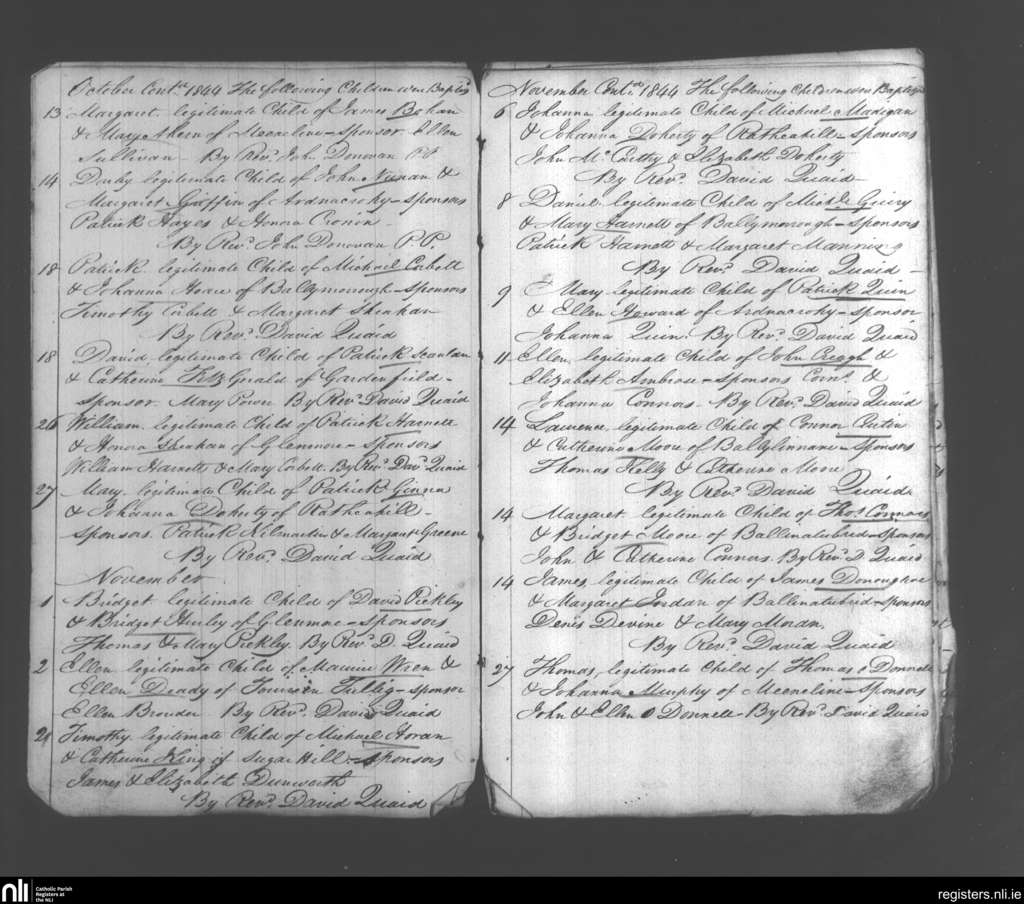 October Cont.d 1844 The following Children were Baptis
13 Margaret, legitimate Child of James Bohan
& Mary Ahern of Meeneline - sponsor Ellen
Sullivan - By Rev.d John Donovan P.P.
14 Darby legitimate Child of John Nunan &
Margaret Griffin of Ardnacrohy - sponsors
Patrick Hayes & Honora Cronin -
By Rev.d John Donovan P.P.
18 Patrick legitimate Child of Michael Corbett
& Johanna of Ballymorrough - sponsors
Timothy Corbett & Margaret Sheahan
By Rev.d David Quaid
18 David legitimate Child of Patrick Scanlan
& Catherine FitzGerald of Gardenfield -
Sponsor Mary Power By Rev.d David Quaid
26 William legitimate Child of Patrick Harnett
& Honora Sheahan of Glenmore - sponsors
William Harnett & Mary Corbett. By Rev.d Dav.d Quaid
27 Mary. legitimate Child of Patrick
& Johanna Doherty of Rathcahill -
Sponsors. Patrick Kilmartin & Margaret Greene
By Rev.d David Quaid
November
1 Bridget legitimate Child of David Pickley
& Bridget Hurley of Glenmore - sponsors
Thomas & Mary Pickley. By Rev.d D. Quaid
2 Ellen legitimate Child of Maurice Wren &
Ellen Deady of - sponsor
Ellen Browder By Rev.d David Quaid
Timothy legitimate Child of Michael Horan
& Catherine King of Sugar Hill - sponsors
James & Elizabeth Dunworth
By Rev.d David Quaid
November Cont.d 1844 The following Children were Baptized
6 Johanna legitimate Child of Michael Madigan
& Johanna Doherty of Rathcahill - sponsors
John Mc Carthy & Elizabeth Doherty
By Rev.d David Quaid -
8 Daniel legitimate Child of Mich.l Guiry
& Mary Harnett of Ballymorrough - sponsors
Patrick Harnett & Margaret Manning
By Rev.d David Quaid -
9 Mary legitimate Child of Patrick Quin
& Ellen Howard of Ardnacrohy - sponsor
Johanna Quin. By Rev.d David Quaid
11 Ellen legitimate Child of John &
Elizabeth Ambrose - sponsors Corn.s &
Johanna Connors - By Rev.d David Quaid
14 Laurence legitimate Child of Connor Curtin
& Catherine Moore of - sponsors
Thomas & Catherine Moore
By Rev.d David Quaid.
14 Margaret legitimate Child of Tho.s Connors
& Bridget Moore of Ballinatubrid - sponsors
John & Catherine Connors. By Rev.d D. Quaid
14 James, legitimate Child of James Donoughue
& Margaret Jordan of Ballinatubrid - sponsors
Denis Devine & Mary Moran.
By Rev.d David Quaid
27 Thomas, legitimate Child of Thomas o Donnell
& Johanna Murphy of Meeneline - sponsors
John & Ellen O Donnell - By Rev.d David Quaid
nli Catholic Parish
Registers at
the NLI
registers.nli.ie